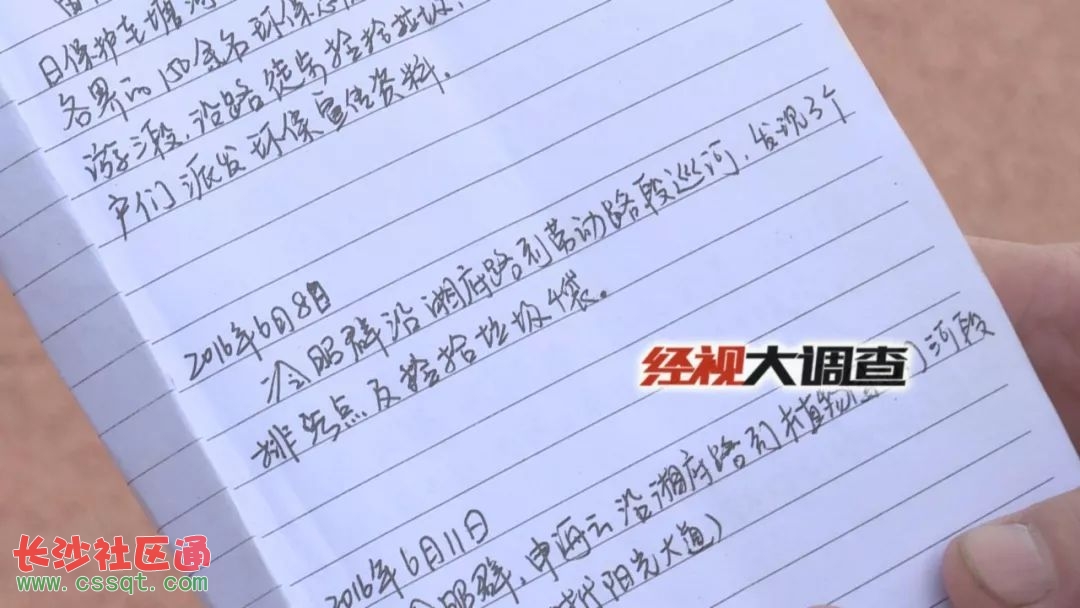 日保护圭塘河
各界的150余名环保志
游河段,沿路徒步捡拾垃圾,
户们派发环保宣传资料.
2016年6月8日
冷昭群沿湘府路到劳动路段巡河,发现3个
排污点及捡拾垃圾4袋。
经视大调查
2016年6月11日
冷昭群,申海云沿湘府路到植物 )河段
时代阳光大道)
长沙社区通
www.cssqt.com